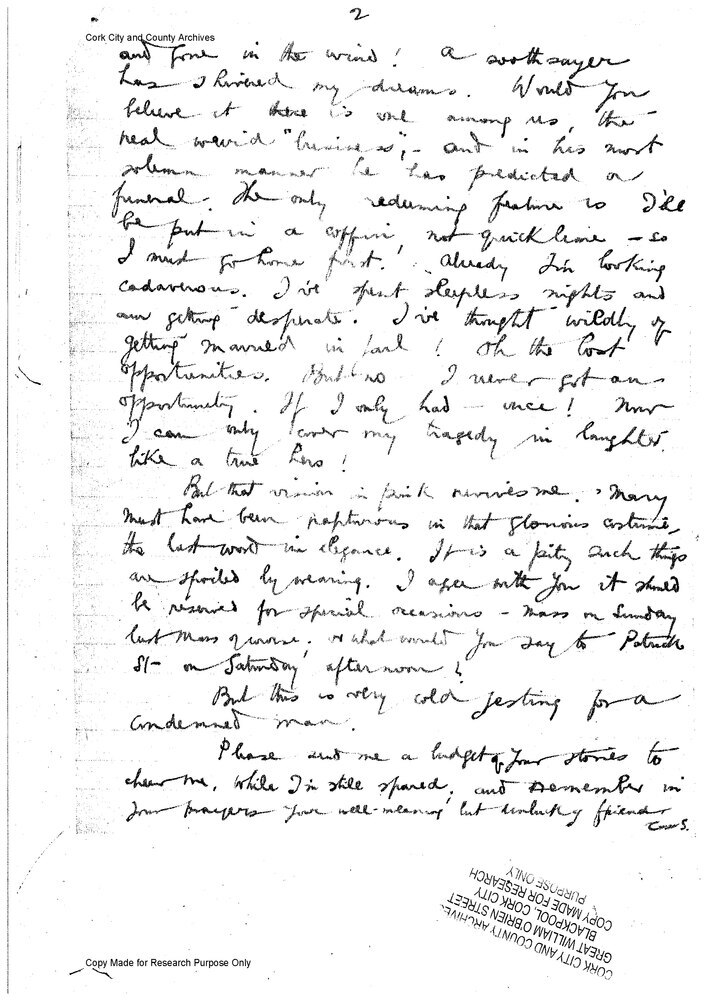 2
Cork City and County Archives
and gone in the wind! A soothsayer
has shivered my dreams. Would you
believe it there is one among us, the
real weird "business", – and in his most
solemn manner he has predicted a
funeral. The only redeeming feature is I'll
be put in a coffin, not quicklime – so
I must go home first! Already I'm looking
cadaverous. I've spent sleepless nights and
am getting desperate. I've thought wildly of
getting married in jail! Oh the lost
opportunities. But no I never got an
opportunity. If I only had – once! Now
I can only cover my tragedy in laughter
like a true hero!
But that vision in pink revives me. Mary
must have been rapturous in that glorious costume,
the last word in elegance. It is a pity such things
are spoiled by wearing. I agree with you it should
be reserved for special occasions – Mass on Sunday
last Mass of course. or what would you say to Patrick
St – on Saturday afternoon!
But this is very cold jesting for a
condemned man.
Please send me a budget of your stories to
cheer me, while I'm still spared, and remember in
your prayers your well-meaning but unlucky friend
CORK CITY AND COUNTY ARCHIVES
GREAT WILLIAM O'BRIEN STREET
BLACKPOOL, CORK CITY
COPY MADE FOR RESEARCH
PURPOSE ONLY
Copy Made for Research Purpose Only